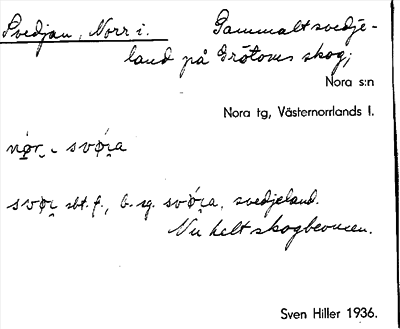 Svedjan, Norr i. Gammalt svedje-
land på Grötoms skog;
Nora s:n
Nora tg, Västernorrlands l.
sbt. f., b. sg. svedjeland.
Nu helt skogbevuxen.
Sven Hiller 1936.